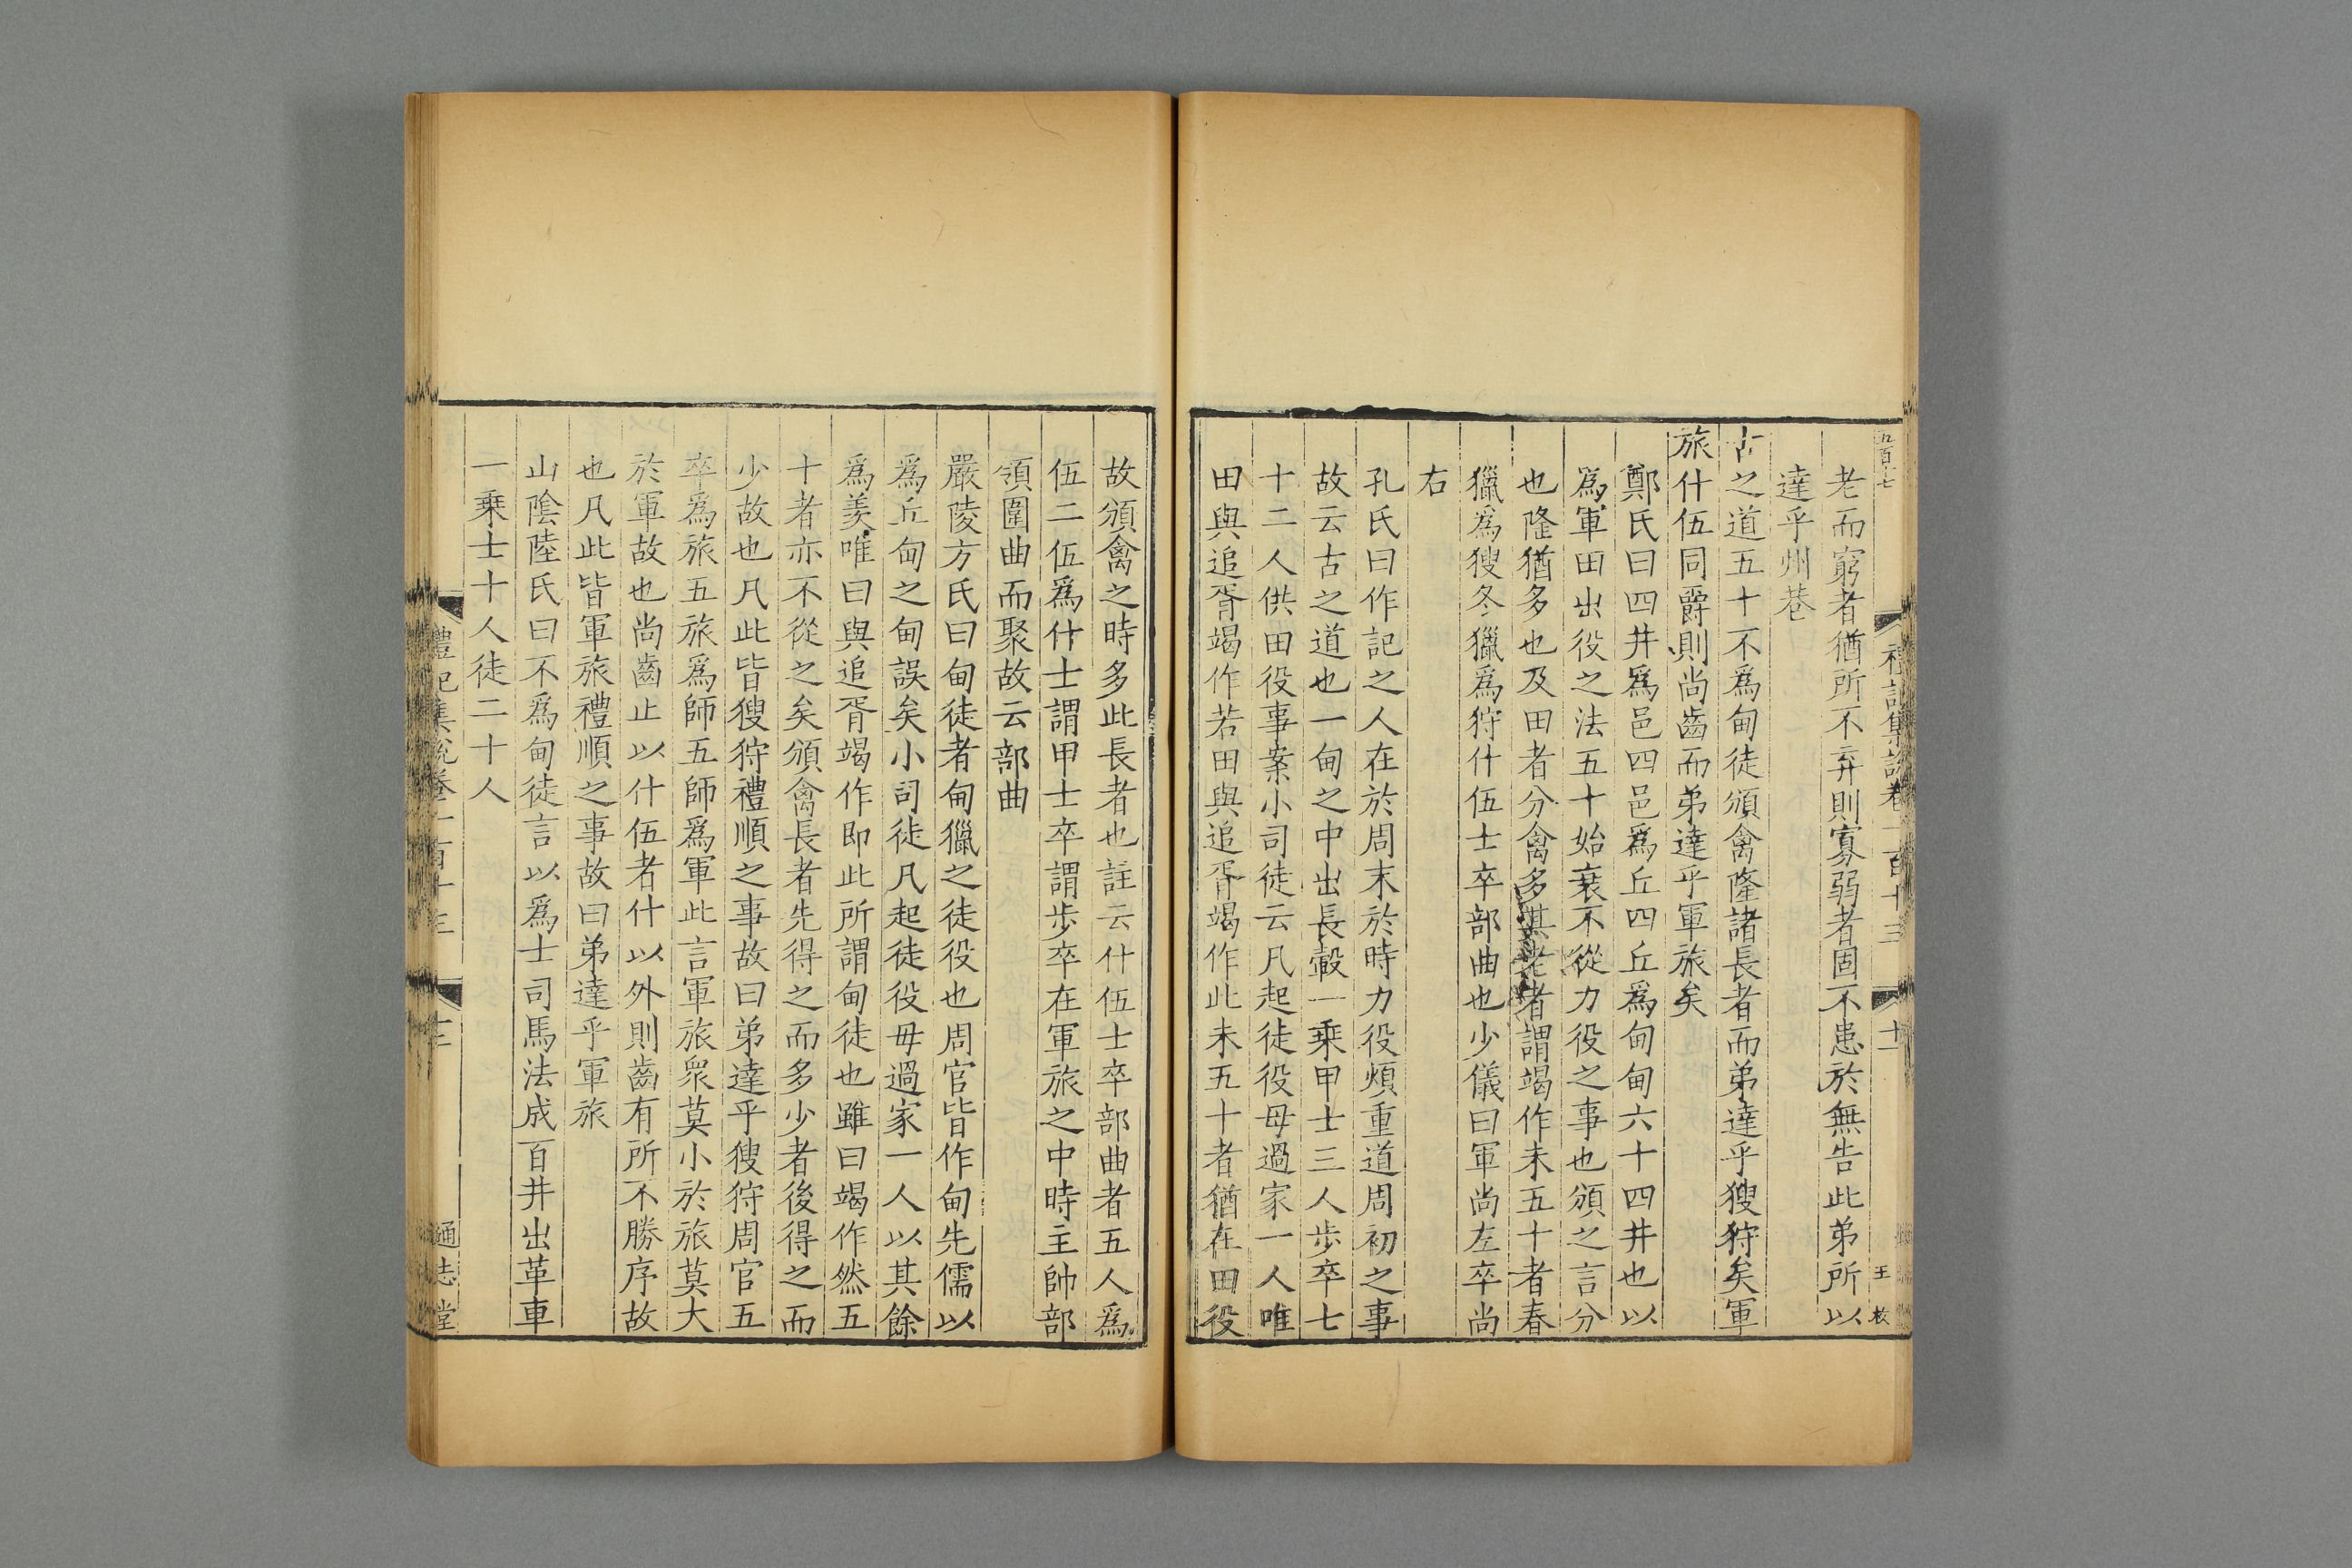 五百十七
禮記集說卷一百十三
十一
王 校
老而窮者猶所不弃則寡弱者固不患於無告此弟所以
達乎州巷
古之道五十不爲甸徒頒禽隆諸長者而弟達乎獀狩矣軍
旅什伍同爵則尚齒而弟達乎軍旅矣
鄭氏曰四井爲邑四邑爲丘四丘爲甸甸六十四井也以
爲軍田出役之法五十始衰不從力役之事也頒之言分
也隆猶多也及田者分禽多其老者謂竭作未五十者春
獵爲獀冬獵爲狩什伍士卒部曲也少儀曰軍尚左卒尚
右
孔氏曰作記之人在於周末於時力役煩重道周初之事
故云古之道也一甸之中出長轂一乗甲士三人歩卒七
十二人供田役事案小司徒云凡起徒役毋過家一人唯
田與追胥竭作若田與追胥竭作此未五十者猶在田役
故頒禽之時多此長者也註云什伍士卒部曲者五人爲
伍二伍爲什士謂甲士卒謂歩卒在軍旅之中時主帥部
領團曲而聚故云部曲
嚴陵方氏曰甸徒者甸獵之徒役也周官皆作甸先儒以
爲丘甸之甸誤矣小司徒凡起徒役毋過家一人以其餘
爲羡唯曰與追胥竭作即此所謂甸徒也雖曰竭作然五
十者亦不從之矣頒禽長者先得之而多少者後得之而
少故也凡此皆獀狩禮順之事故曰弟達乎獀狩周官五
卒爲旅五旅爲師五師爲軍此言軍旅衆莫小於旅莫大
於軍故也尚齒止以什伍者什以外則齒有所不勝序故
也凡此皆軍旅禮順之事故曰弟達乎軍旅
山陰陸氏曰不爲甸徒言以爲士司馬法成百井出革車
一乗士十人徒二十人
禮記集說卷一百十三
通志堂